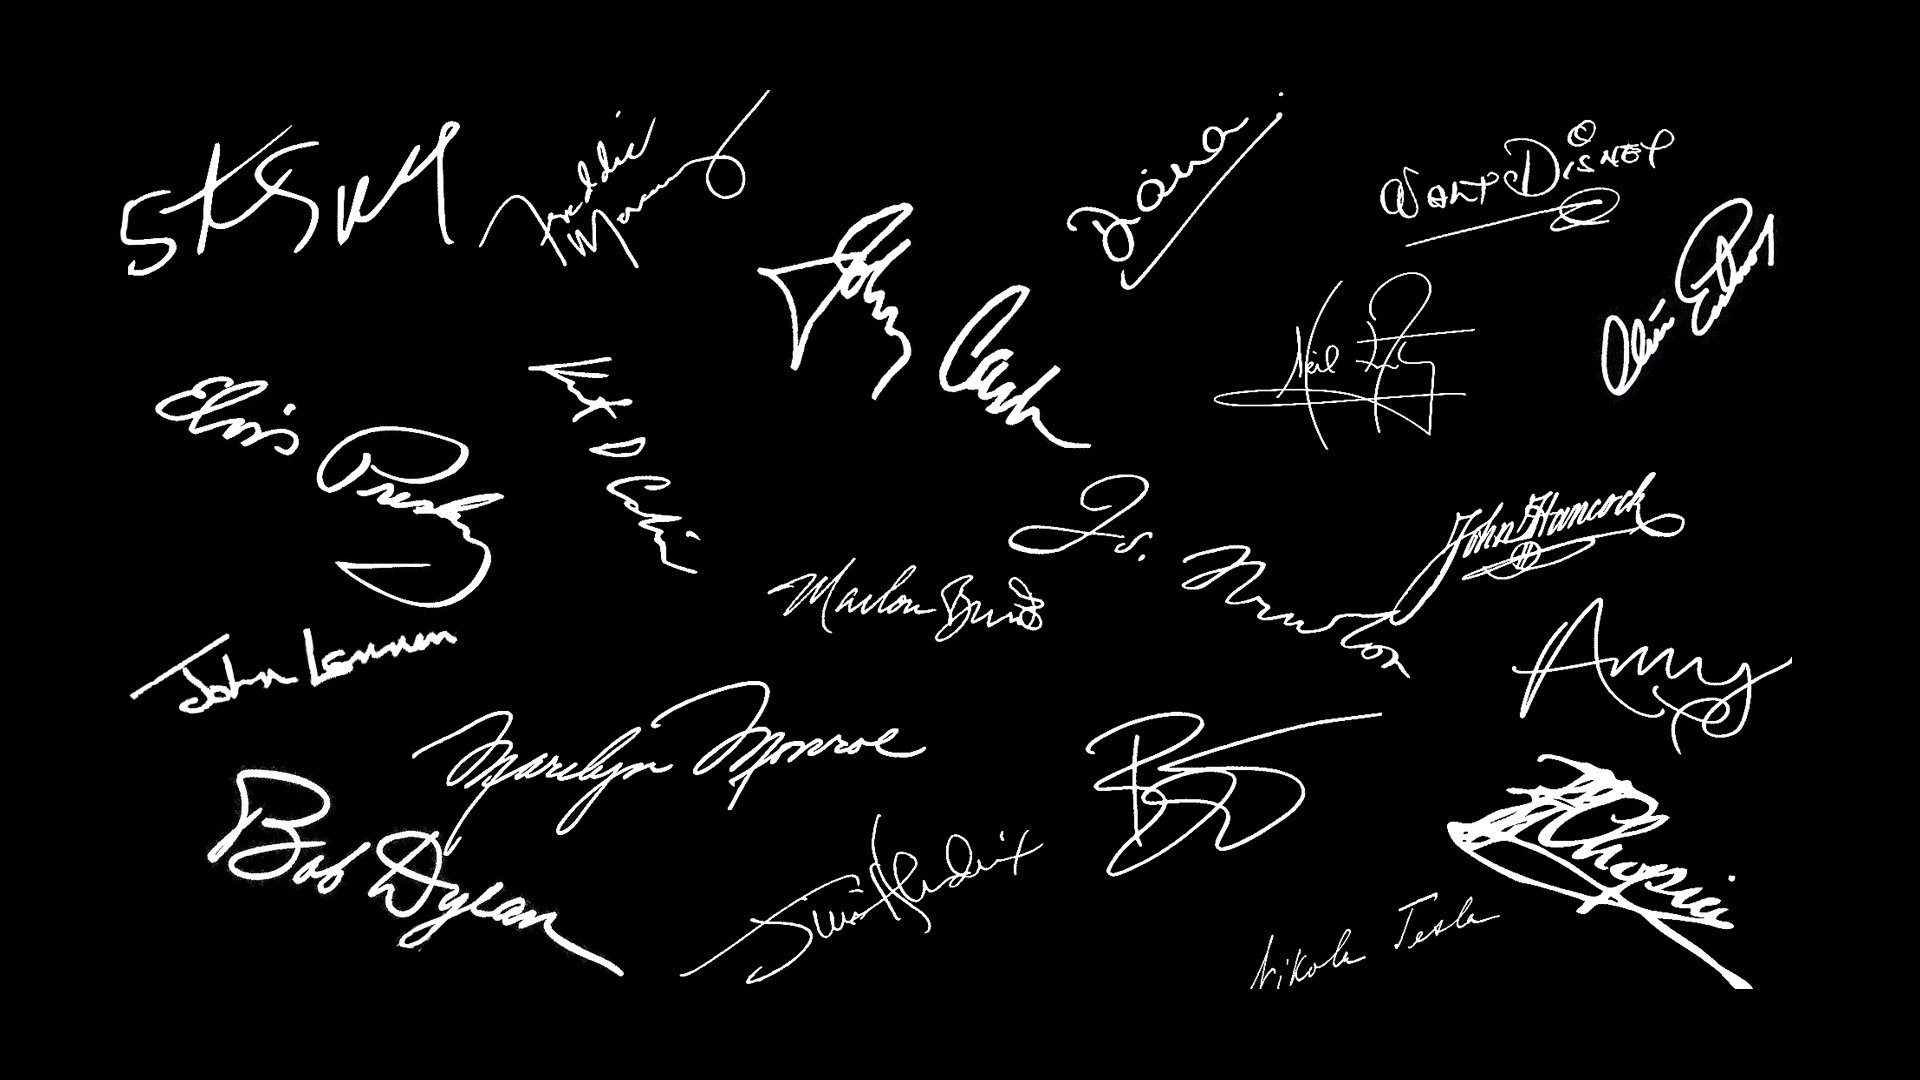 Freddie
Mercury
Diana
Walt Disney
Johnny Cash
Neil
Elvis Presley
Kurt D Cobain
Is. Newton
John Hancock
Marlon Brando
John Lennon
Amy
Marilyn Monroe
Bob Dylan
Jimi Hendrix
Chopin
Nikola Tesla